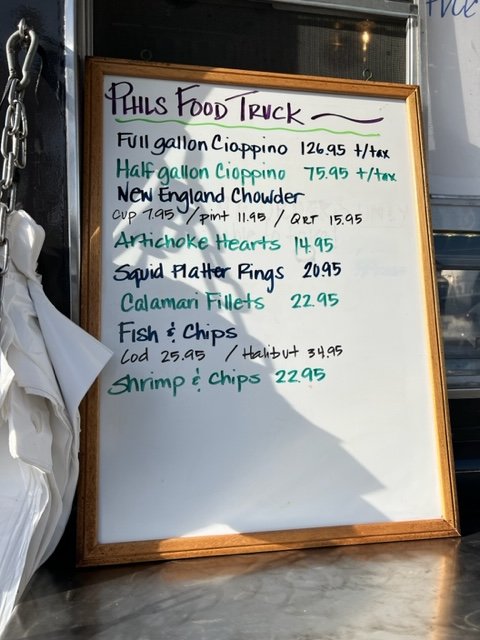 PHILS FOOD TRUCK
Full gallon Cioppino 126.95 t/tax
Half gallon Cioppino 75.95 t/tax
New England Chowder
Cup 7.95 / pint 11.95 / QRT 15.95
Artichoke Hearts 14.95
Squid Platter Rings 2095
Calamari Fillets 22.95
Fish & Chips
Cod 25.95 / Halibut 34.95
Shrimp & Chips 22.95